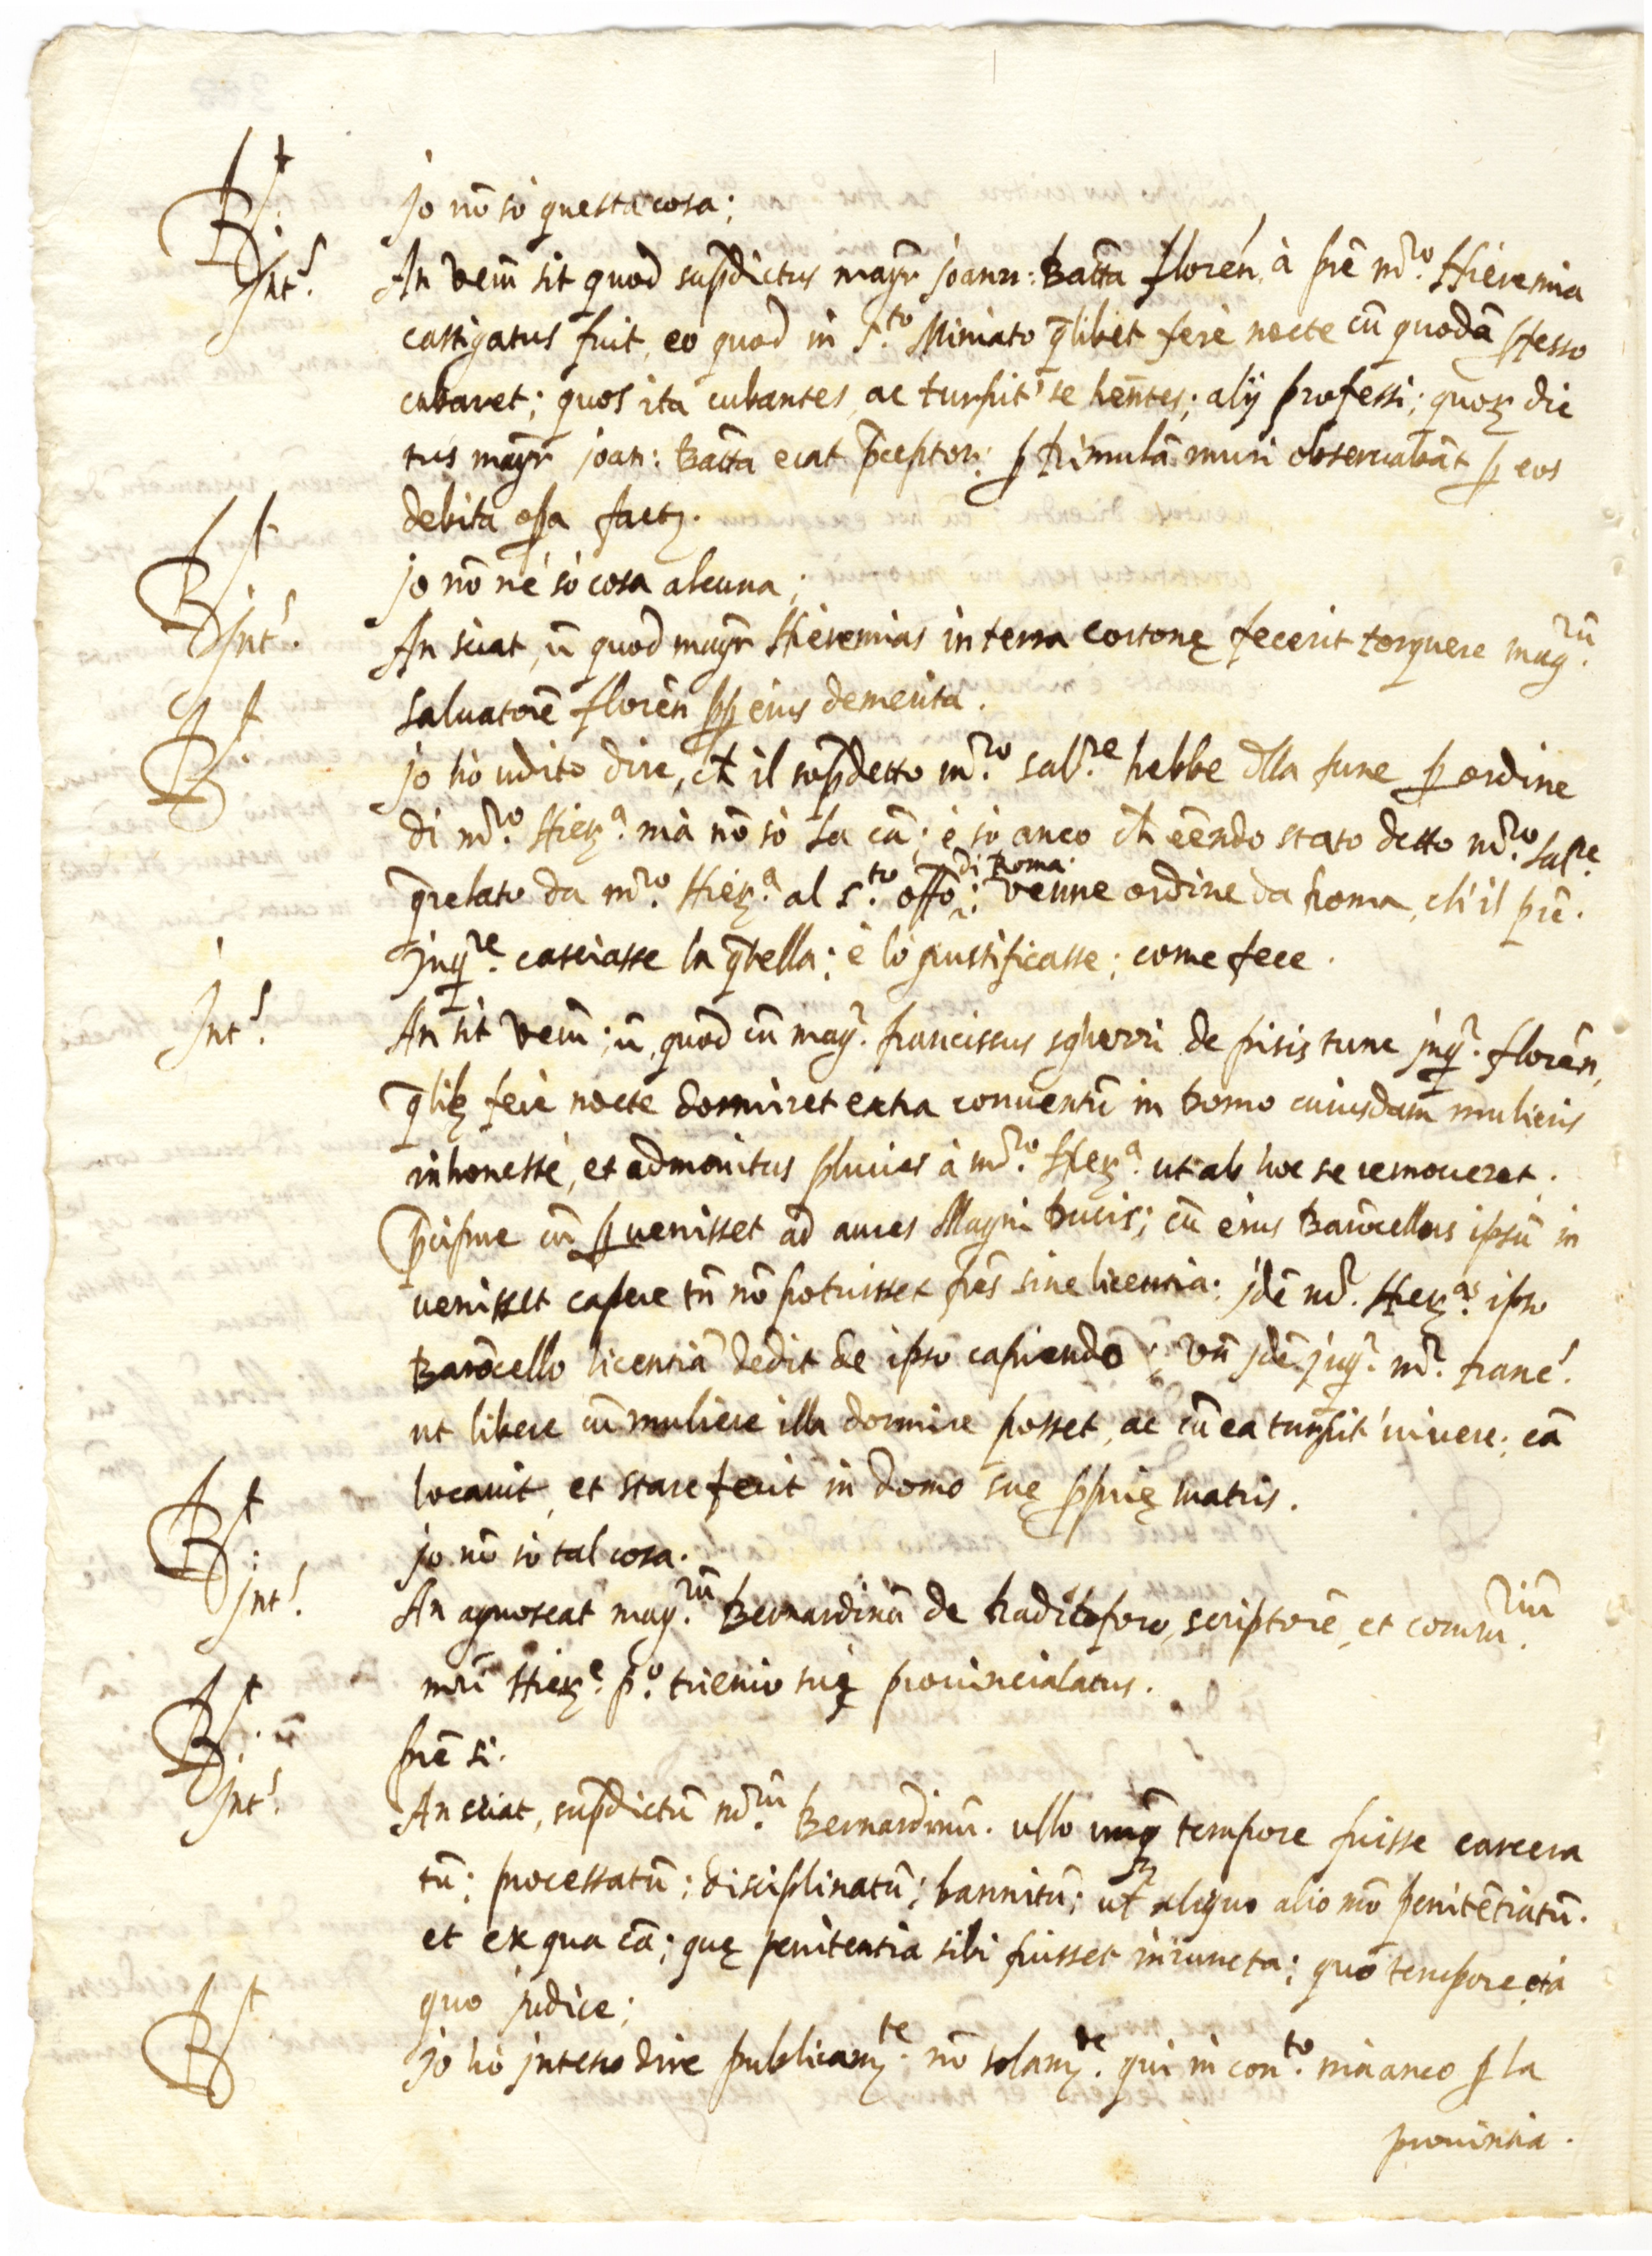 Rt: jo nō sò questa cosa;
Intˢ. An verū sit quod sup̄dictus magr̄ joann: Batt̄a florēn. à frē m̄ʳᵒ. Hieremia
castigatus fuit, eo quod in S.ᵗᵒ Miniato q̄libet ferè nocte cū quodā
cubaret; quos ita cubantes, ac turpitʳ se hēntes; alij professi; quoꝝ dic
tus magr̄ joan: Batt̄a erat p̄ceptor; ꝑ rimulā muri obseruabāt ꝑ eos
debita oꝑa
Rt: jo nō né sò cosa alcuna;
Intˢ. An sciat, ū quod magr̄ Hieremias in terra cortonę fecerit torquere mag.ʳū
saluatorē florēn ꝓꝑ eius demerita.
Rt jo hò udito dire, ch̄ il sop̄detto m̄.ʳᵒ Salʳ.ʳᵉ hebbe d̄lla fune ꝑ ordine
di m̄.ʳᵒ Hieꝝ.ᵃ mà nō sò la cā; è sò anco ch̄ eēndo stato detto m̄.ʳᵒ Salʳᵉ.
q̄relato da m̄.ʳᵒ Hieꝝ.ᵃ al S.ᵗᵒ offō: di Roma. venne ordine da Roma, ch'il prē.
jnqʳ.ʳᵉ cassiasse la q̄rella; è lo giustificasse; come fece.
Intˢ. An sit verū; ū, quod cū magʳ. franciscus sgherri de pisis tunc jnqʳ. florēn,
q̄libꝫ ferè nocte dormiret extra conuentū in domo cuiusdam mulieris
inhonestè, et admonitus pluries à m̄.ʳᵒ Hieꝝ.ᵃ ut ab hoc se remoueret.
p̄cipue cū ꝑuenisset ad aures Magni Ducis; cū eius Barōcellus ipsū in
uenisset capere tn̄ nō potuisset frēs sine licentia: jdē m̄ʳ. Hieꝝ.ᵃˢ ipso
Barōcello licentiā dedit de ipso capiendo; vn̄ jdē jnqʳ. m̄ʳ. francˢ.
ut libere cū muliere illa dormire posset, ac cū ea turpitʳ uiuere; eā
locauit, et stare fecit in domo suę ꝓprię matris.
Rt: jo nō sò tal cosa.
Intˢ. An agnoscat mag.ʳū Bernardinū de traditoforo, scriptorē, et comm.ʳⁱū
mr̄i Hieꝝ.ᵉ p.º trienio suę prouincialatus.
Rt: frē si.
Intˢ. An sciat, sup̄dictū m̄.ʳū Bernardinū. ullo unq̄ tempore fuisse carcera
tū; processatū; disciplinatū; bannitū; uꝉ aliquo alio mō penitētiatū.
et ex qua cā; quę penitentia sibi fuisset iniuncta; quo tempore
quo judice;
Rt jo hò inteso dire publicamꝫ.ᵗᵉ nō solamꝫ.ᵗᵉ qui in con.ᵗᵒ mà anco ꝑ la
prouintia.